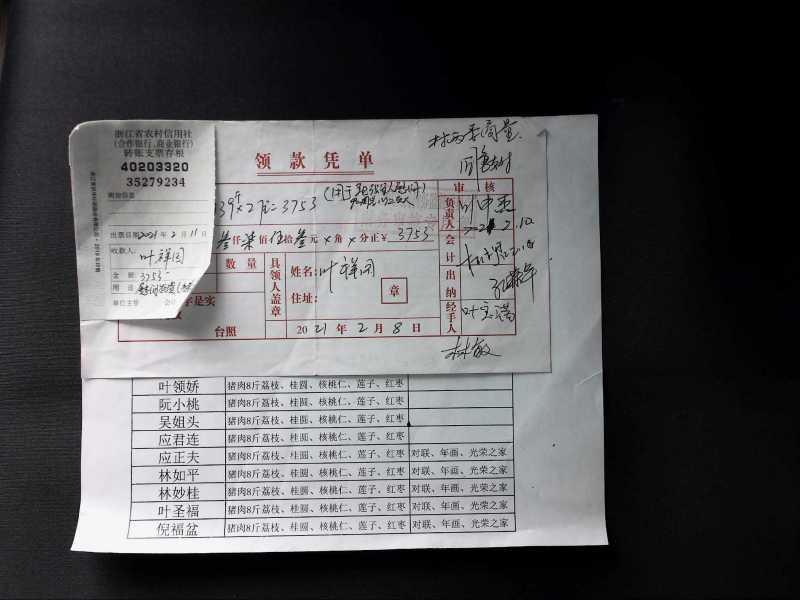 浙江省农村信用社
(合作银行、商业银行)
转账支票存根
40203320
35279234
附加信息
出票日期2021年2月11日
收款人:
叶祥园
金额:3753-
用途:
单位主管 会计
村两委商量
同意支付
领款凭单
审核
139斤×27元=3753
叁仟柒佰伍拾叁元×角×分正¥3753
数量
具领人盖章
姓名:叶祥园
住址:
章
负责人
2021.2.10
会计
出纳
经手人
字是实
台照
2021年2月8日
林敏
叶领娇 猪肉8斤荔枝、桂圆、核桃仁、莲子、红枣
阮小桃 猪肉8斤荔枝、桂圆、核桃仁、莲子、红枣
吴姐头 猪肉8斤荔枝、桂圆、核桃仁、莲子、红枣
应君连 猪肉8斤荔枝、桂圆、核桃仁、莲子、红枣
应正夫 猪肉8斤荔枝、桂圆、核桃仁、莲子、红枣 对联、年画、光荣之家
林如平 猪肉8斤荔枝、桂圆、核桃仁、莲子、红枣 对联、年画、光荣之家
林妙桂 猪肉8斤荔枝、桂圆、核桃仁、莲子、红枣 对联、年画、光荣之家
叶圣福 猪肉8斤荔枝、桂圆、核桃仁、莲子、红枣 对联、年画、光荣之家
倪福盆 猪肉8斤荔枝、桂圆、核桃仁、莲子、红枣 对联、年画、光荣之家